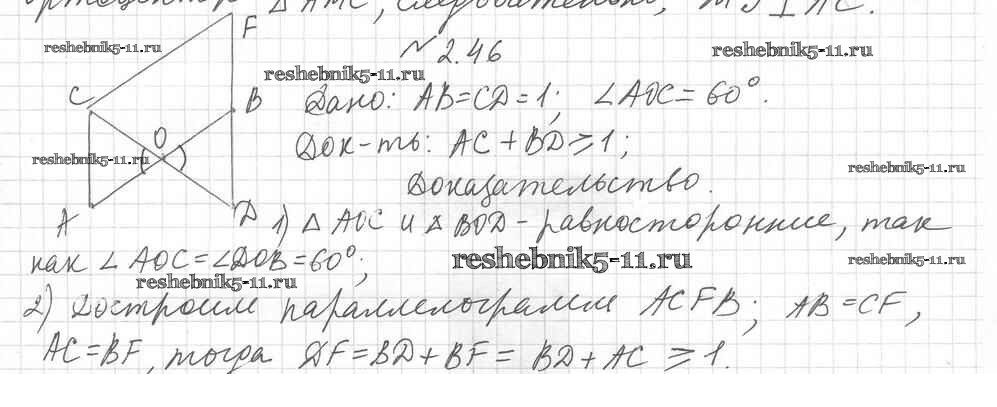 ортоцентр △ AMC, следовательно,
F
reshebnik5-11.ru
№ 2.46
reshebnik5-11.ru
reshebnik5-11.ru
C
B
Дано: AB=CD=1; ∠AOC=60°.
O
reshebnik5-11.ru
Док-ть: AC+BD⩾1;
reshebnik5-11.ru
Доказательство.
A
D
1) △ AOC и △ BOD - равносторонние, так
как ∠AOC=∠DOB=60°;
reshebnik5-11.ru
reshebnik5-11.ru
reshebnik5-11.ru
2) Достроим параллелограмм ACFB; AB=CF,
AC=BF, тогда DF=BD+BF= BD+AC ⩾1.